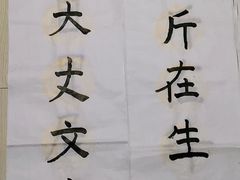 斤在生
大丈文